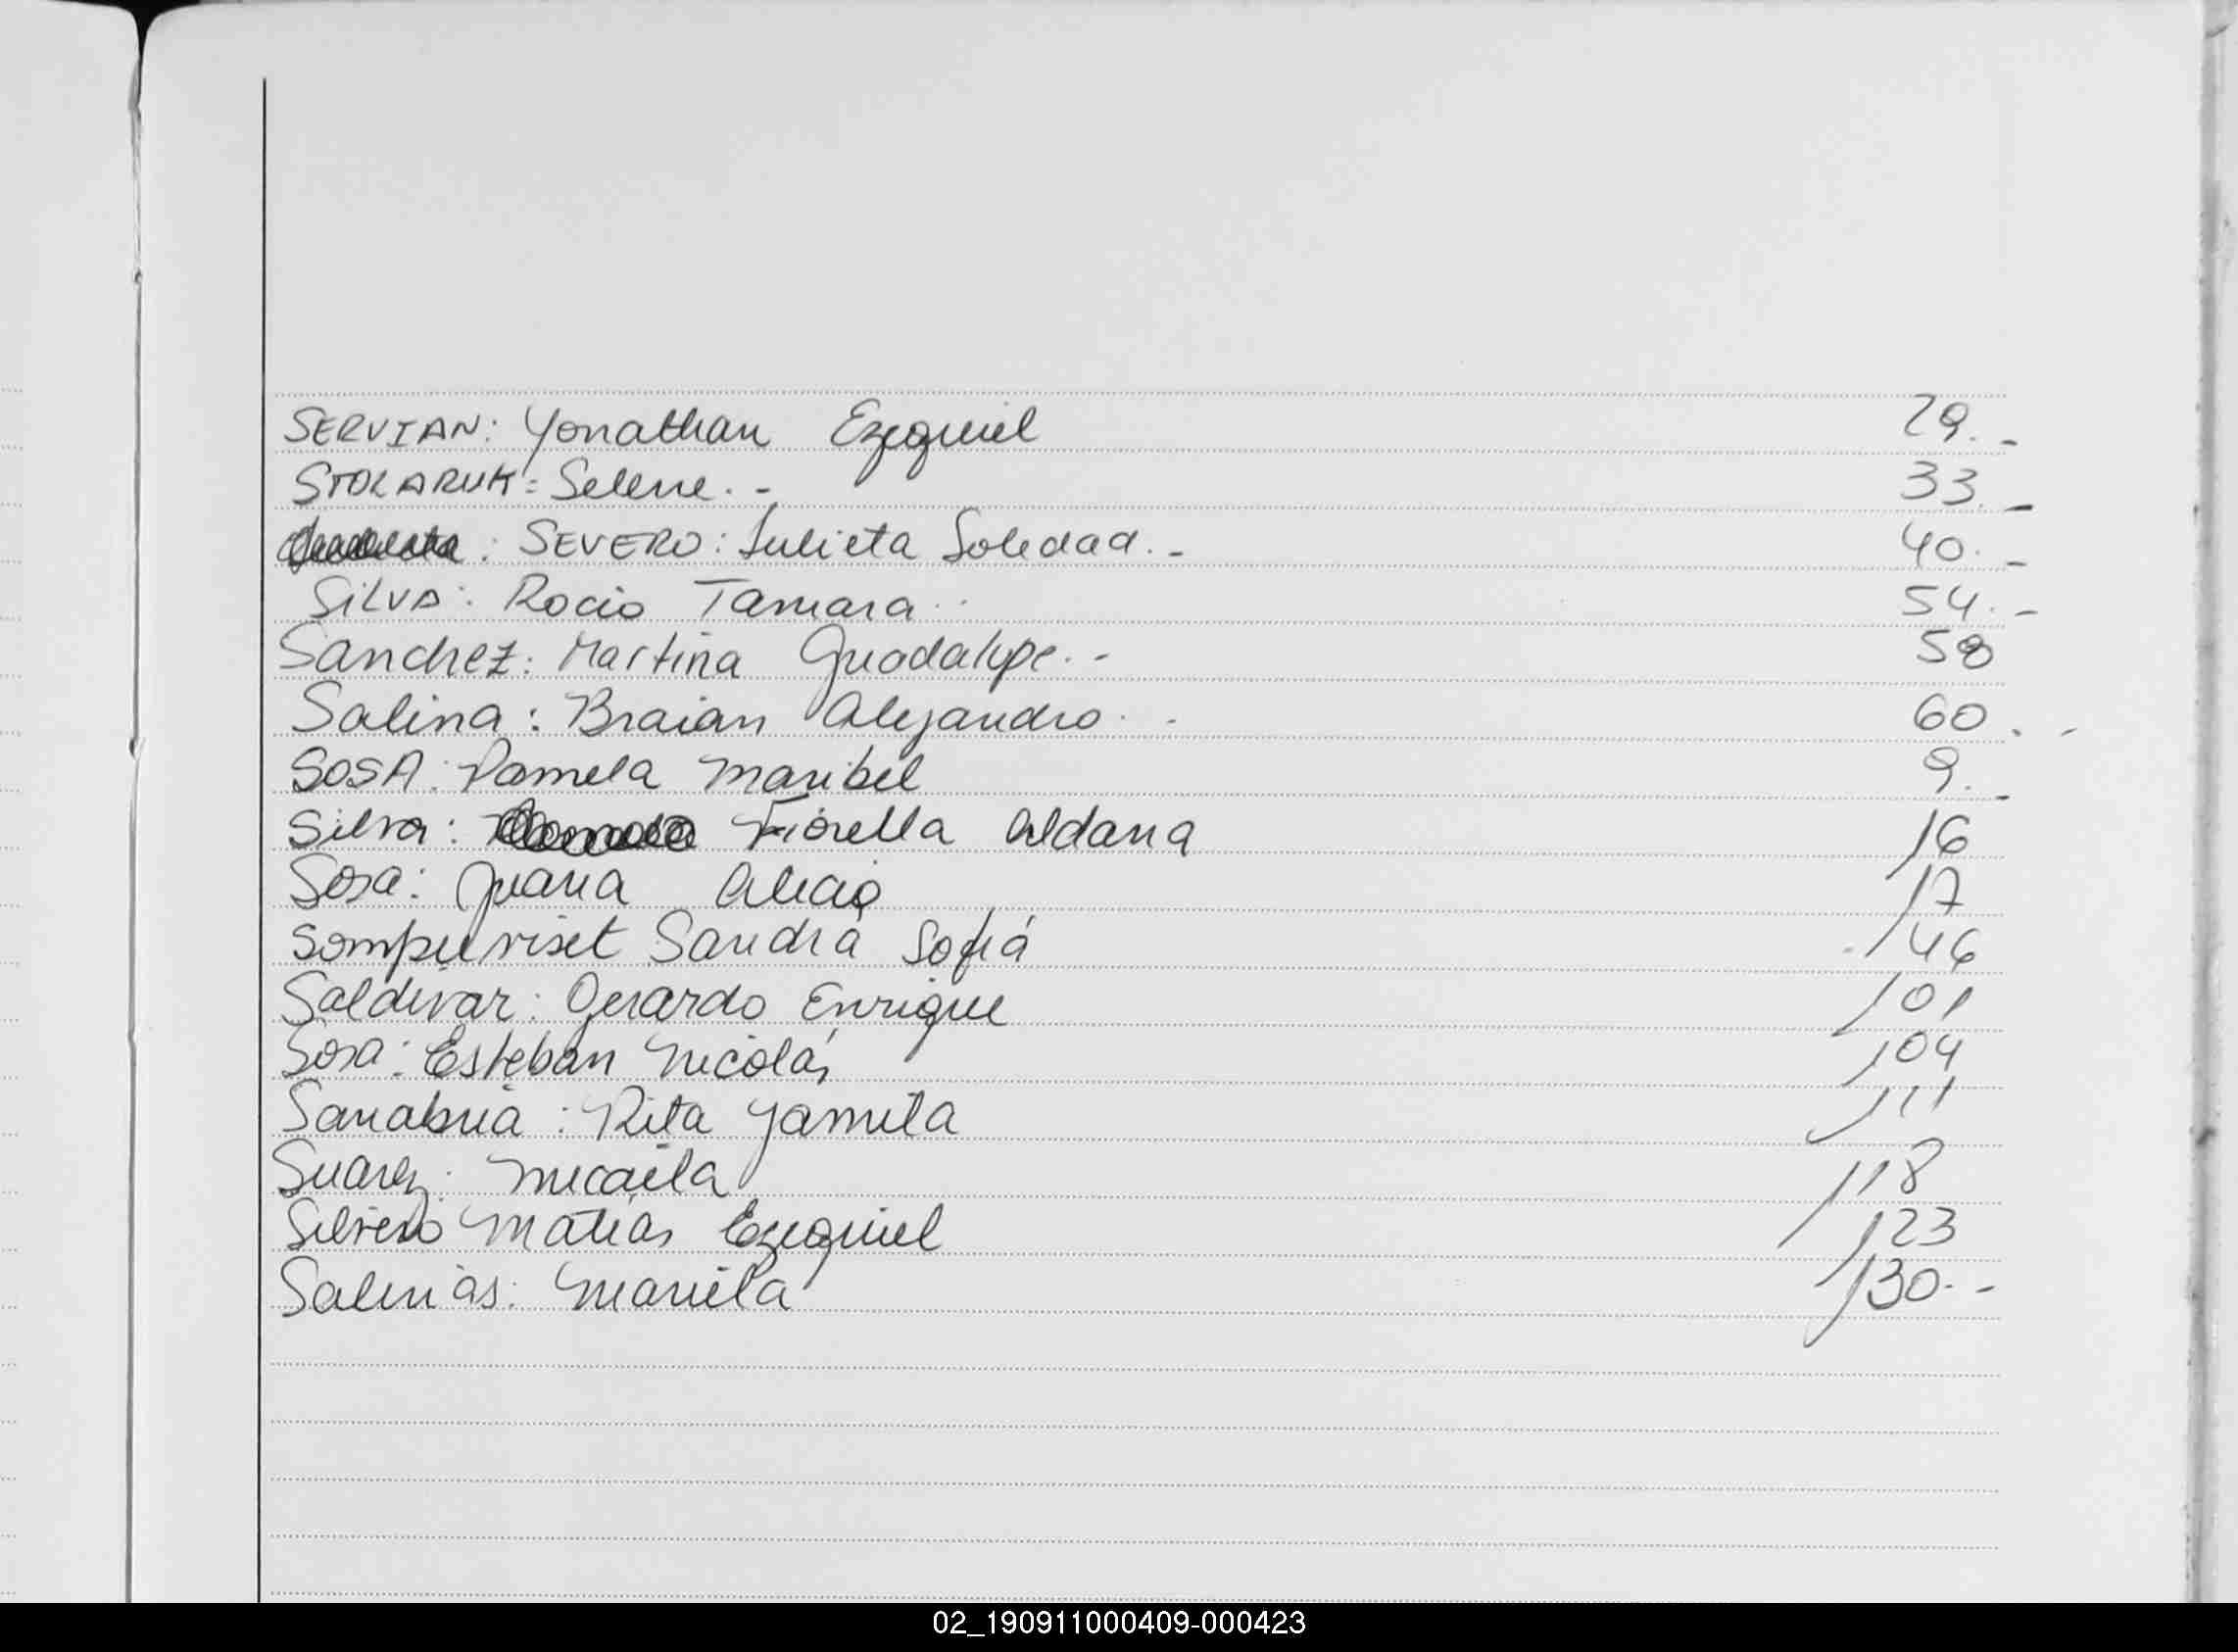 SERVIAN: Yonathan Ezequiel 29.-
STOLARUK: Selene.- 33.-
: SEVERO: Julieta Soledad.- 40.-
SILVA: Rocio Tamara.. 54.-
Sanchez: Martina Guadalupe.- 58
Salina: Braian Alejandro.- 60.-
SOSA: Pamela Maribel 9.-
Silva: Fiorella Aldana 16
Sosa: Juana Alicia 17
Sandra Sofiá 46
Saldivar: Gerardo Enrique 101
Sosa: Esteban Nicolás 104
Sanabria: Rita Yamila 111
Suarez: Micaela 118
Silvero Matias Ezequiel 123
Salinas: Mariela 130.-
02_190911000409-000423